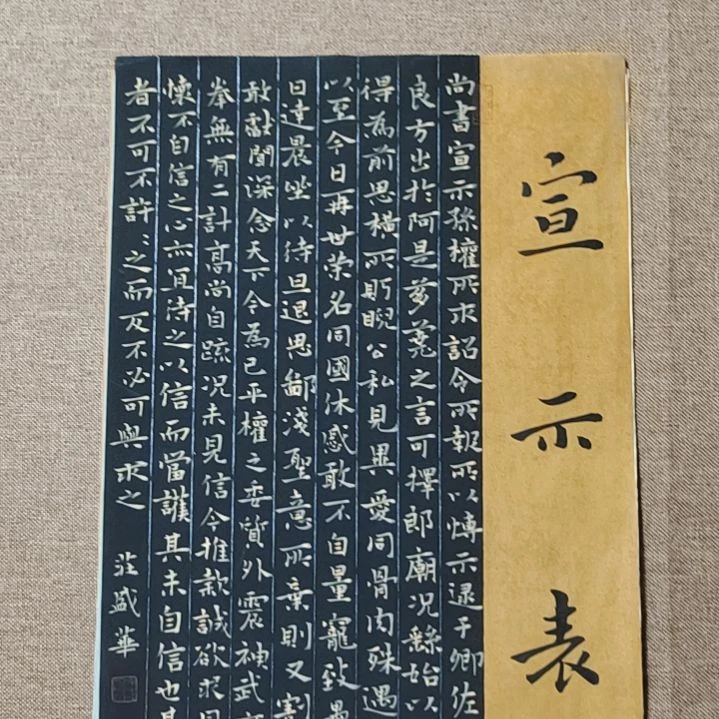 宣示表
尚書宣示孫權所求詔令所報所以博示逮于卿佐
良方出於阿是芻蕘之言可擇郎廟況繇始以
得為前思橫所眄睨公私見異愛同骨肉殊遇
以至今日再世榮名同國休慼敢不自量竊致愚
日達晨坐以待旦退思鄙淺聖意所棄則又割
敢獻聞深念天下今為已平權之委質外震神武
拳無有二計高尚自疏況未見信今推款誠欲求
懷不自信之心亦宜待之以信而當護其未自信也其
者不可不許許之而反不必可與求之
莊盛華